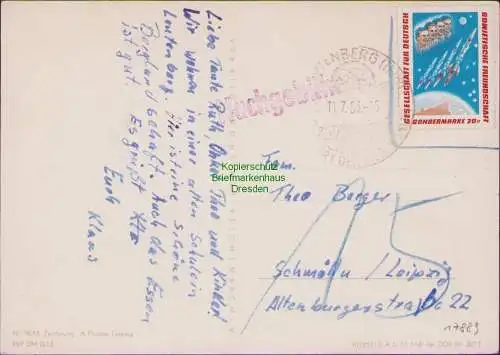 Liebe Tante Ruth, Onkel Theo und Kinder!
Wir wohnen in einer alten Schule in
Leutenberg. Hier ist eine schöne
Berglandschaft. Auch das Essen
ist gut. Es grüßt
Euch Klaus
Nachgebühr
11.7.63
GESELLSCHAFT FÜR DEUTSCH
SOWJETISCHE FREUNDSCHAFT
SONDERMARKE 20
Kopierschutz
Briefmarkenhaus
Dresden
Fam.
Theo Berger
15
Schmölln / Leipzig
Altenburgerstraße 22
17889